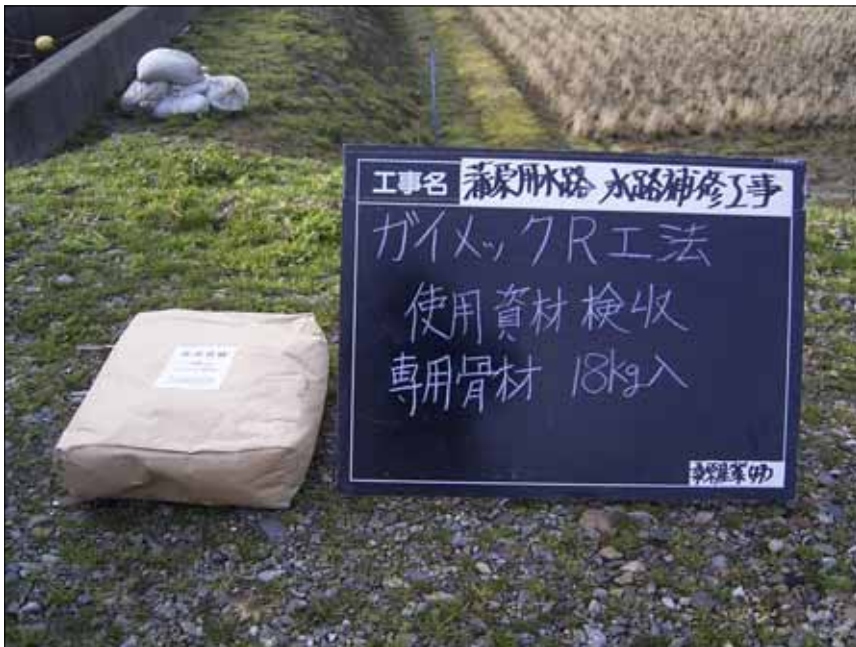 工事名 蒲原用水路 水路補修工事
ガイメックR工法
使用資材検収
専用骨材 18kg入